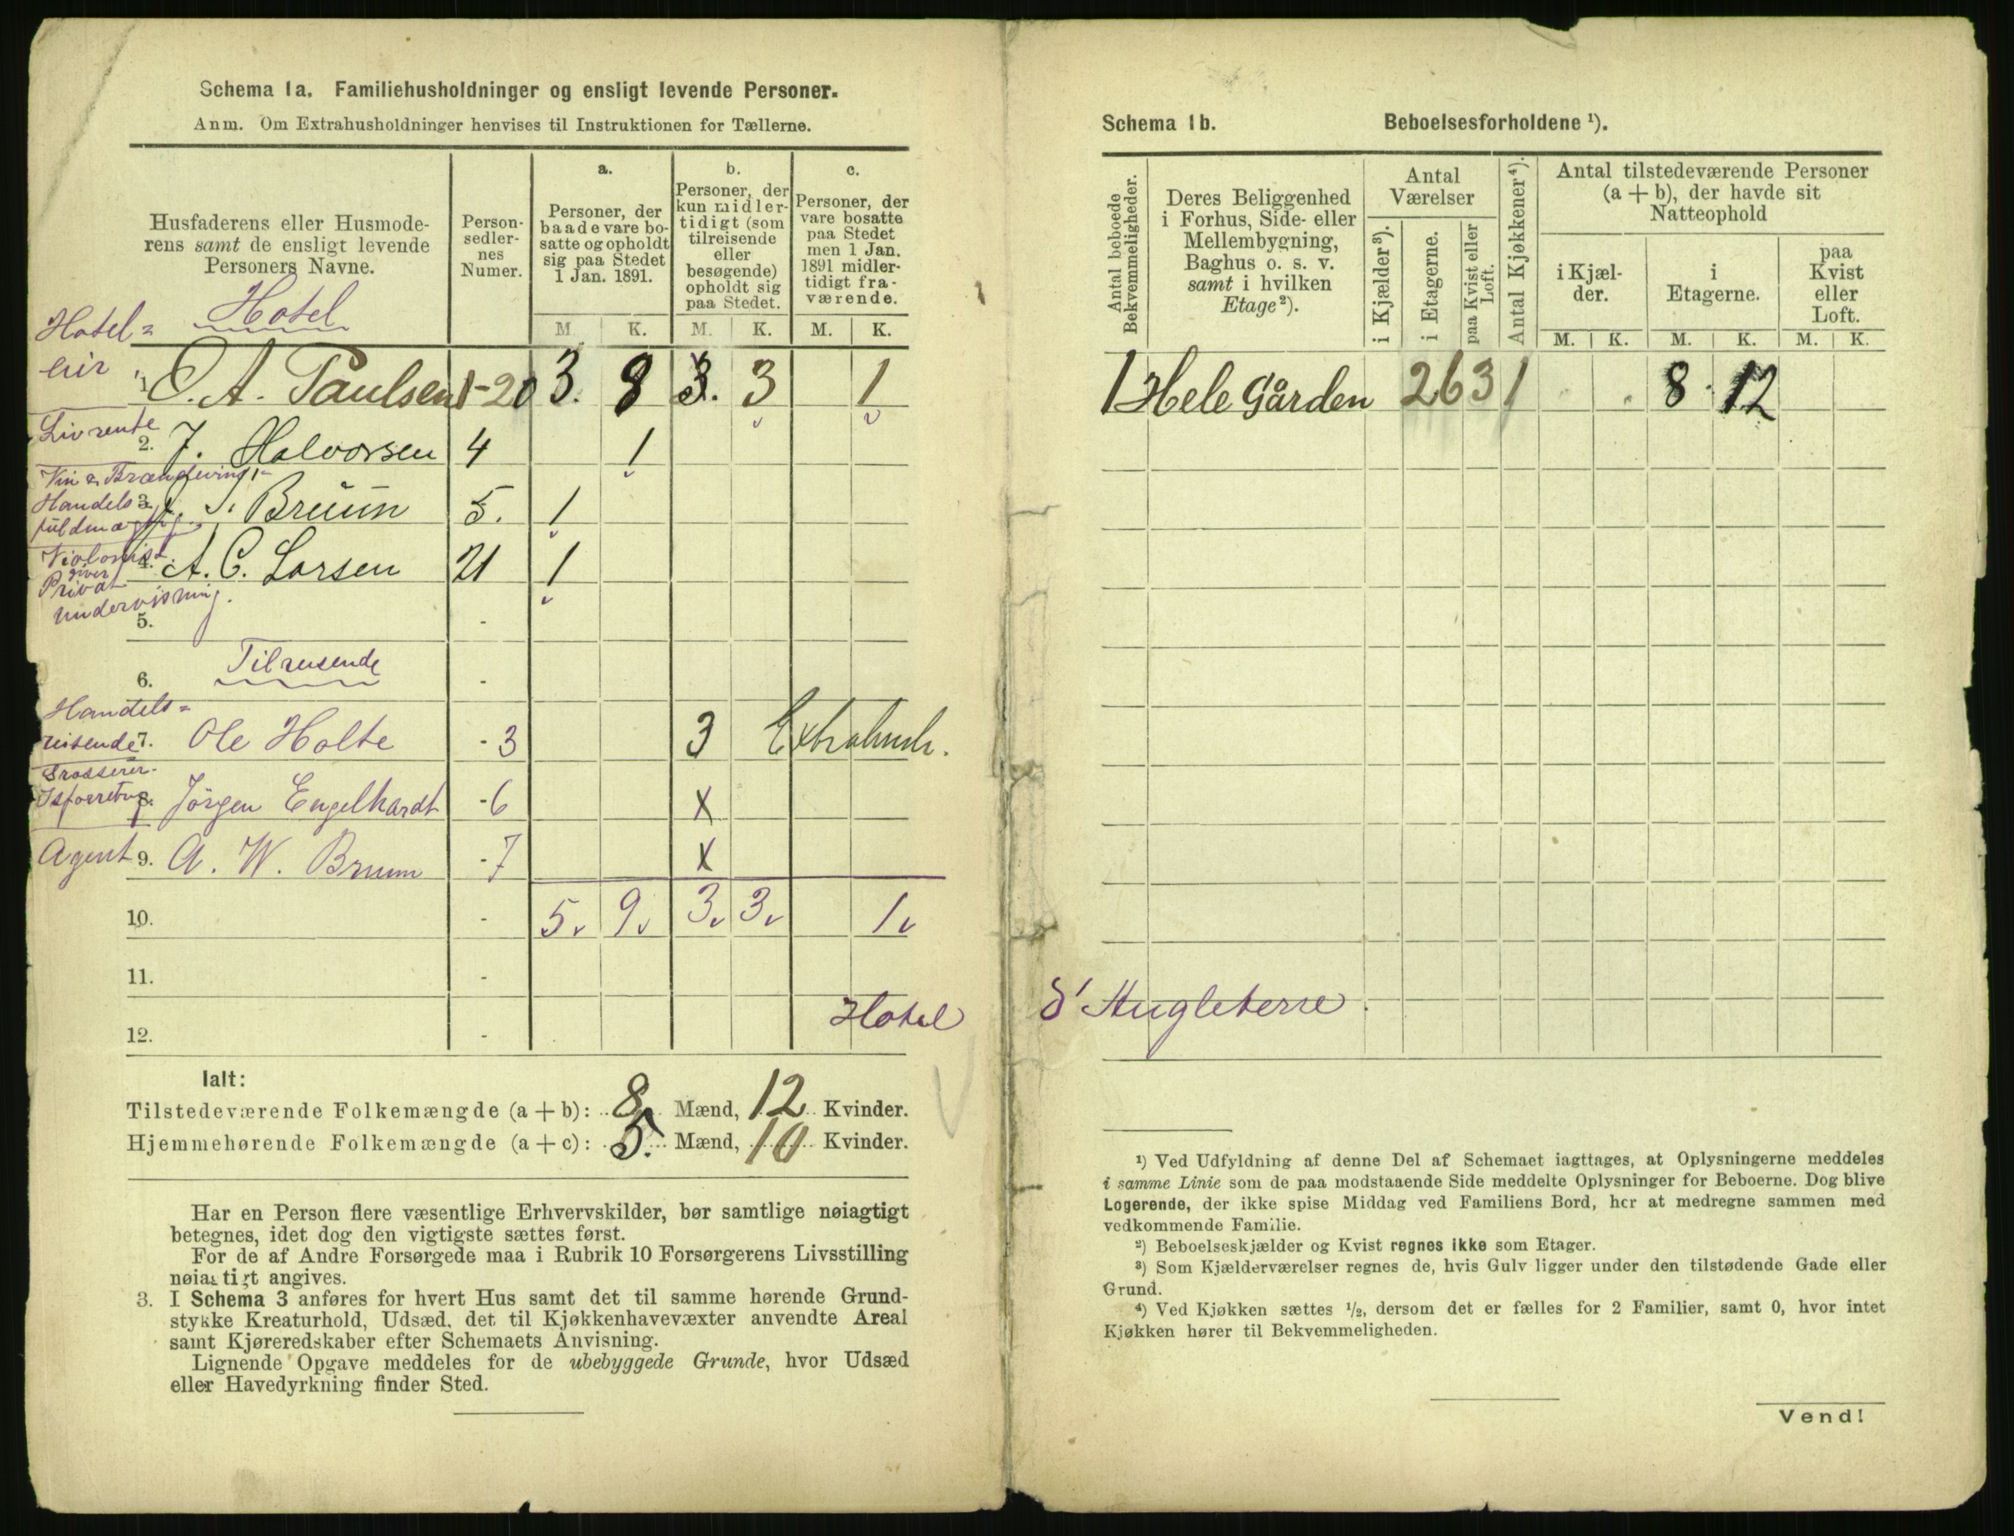 Schema 1a. Familiehusholdninger og ensligt levende Personer.
Anm. Om Extrahusholdninger henvises til Instruktionen for Tællerne.
Husfaderens eller Husmode-
rens samt de ensligt levende
Personers Navne.
Person-
sedler-
nes
Numer.
a.
Personer, der
baade vare bo-
satte og opholdt
sig paa Stedet
1 Jan. 1891.
b.
Personer, der
kun midler-
tidigt (som
tilreisende
eller
besøgende)
opholdt sig
paa Stedet.
c.
Personer, der
vare bosatte
paa Stedet
men 1 Jan.
1891 midler-
tidigt fra-
værende.
M. K. M. K. M. K.
Hotel
Hotel=
eier
1 C. A. Paulsen 1-20 3. 8 3. 3 1
Livrente
2. J. Halvorsen 4 1
Vin & Brændevins
Handels
fuldmægtig
3. S. Bruun 5. 1
Violinist
giver
Privat
undervisning.
4. A. C. Larsen 21 1
5. -
6. Tilreisende -
Handels=
reisende
7. Ole Holte -3 3 Extrahush.
Grosserer
Isforretng
8. Jörgen Engelhardt -6 x
Agent 9. A. W. Bruun -7 x
10. - 5. 9. 3. 3. 1.
11. -
12. - Hotel
Ialt:
Tilstedeværende Folkemængde (a + b): 8 Mænd, 12 Kvinder.
Hjemmehørende Folkemængde (a + c): 5. Mænd, 10 Kvinder.
Har en Person flere væsentlige Erhvervskilder, bør samtlige nøiagtigt
betegnes, idet dog den vigtigste sættes først.
For de af Andre Forsørgede maa i Rubrik 10 Forsørgerens Livsstilling
nøiagtigt angives.
3. I Schema 3 anføres for hvert Hus samt det til samme hørende Grund-
stykke Kreaturhold, Udsæd, det til Kjøkkenhavevæxter anvendte Areal
samt Kjøreredskaber efter Schemaets Anvisning.
Lignende Opgave meddeles for de ubebyggede Grunde, hvor Udsæd
eller Havedyrkning finder Sted.
Schema 1b. Beboelsesforholdene ¹).
Antal beboede
Bekvemmeligheder.
Deres Beliggenhed
i Forhus, Side- eller
Mellembygning,
Baghus o. s. v.
samt i hvilken
Etage²).
Antal
Værelser
i Kjælder³).
i Etagerne.
paa Kvist eller
Loft.
Antal Kjøkkener⁴).
Antal tilstedeværende Personer
(a + b), der havde sit
Natteophold
i Kjæl-
der.
i
Etagerne.
paa
Kvist
eller
Loft.
M. K. M. K. M. K.
1 Hele Gården 26 3 1 8 12
d'Angleterre.
¹) Ved Udfyldning af denne Del af Schemaet iagttages, at Oplysningerne meddeles
i samme Linie som de paa modstaaende Side meddelte Oplysninger for Beboerne. Dog blive
Logerende, der ikke spise Middag ved Familiens Bord, her at medregne sammen med
vedkommende Familie.
²) Beboelseskjælder og Kvist regnes ikke som Etager.
³) Som Kjælderværelser regnes de, hvis Gulv ligger under den tilstødende Gade eller
Grund.
⁴) Ved Kjøkken sættes ½, dersom det er fælles for 2 Familier, samt 0, hvor intet
Kjøkken hører til Bekvemmeligheden.
Vend!